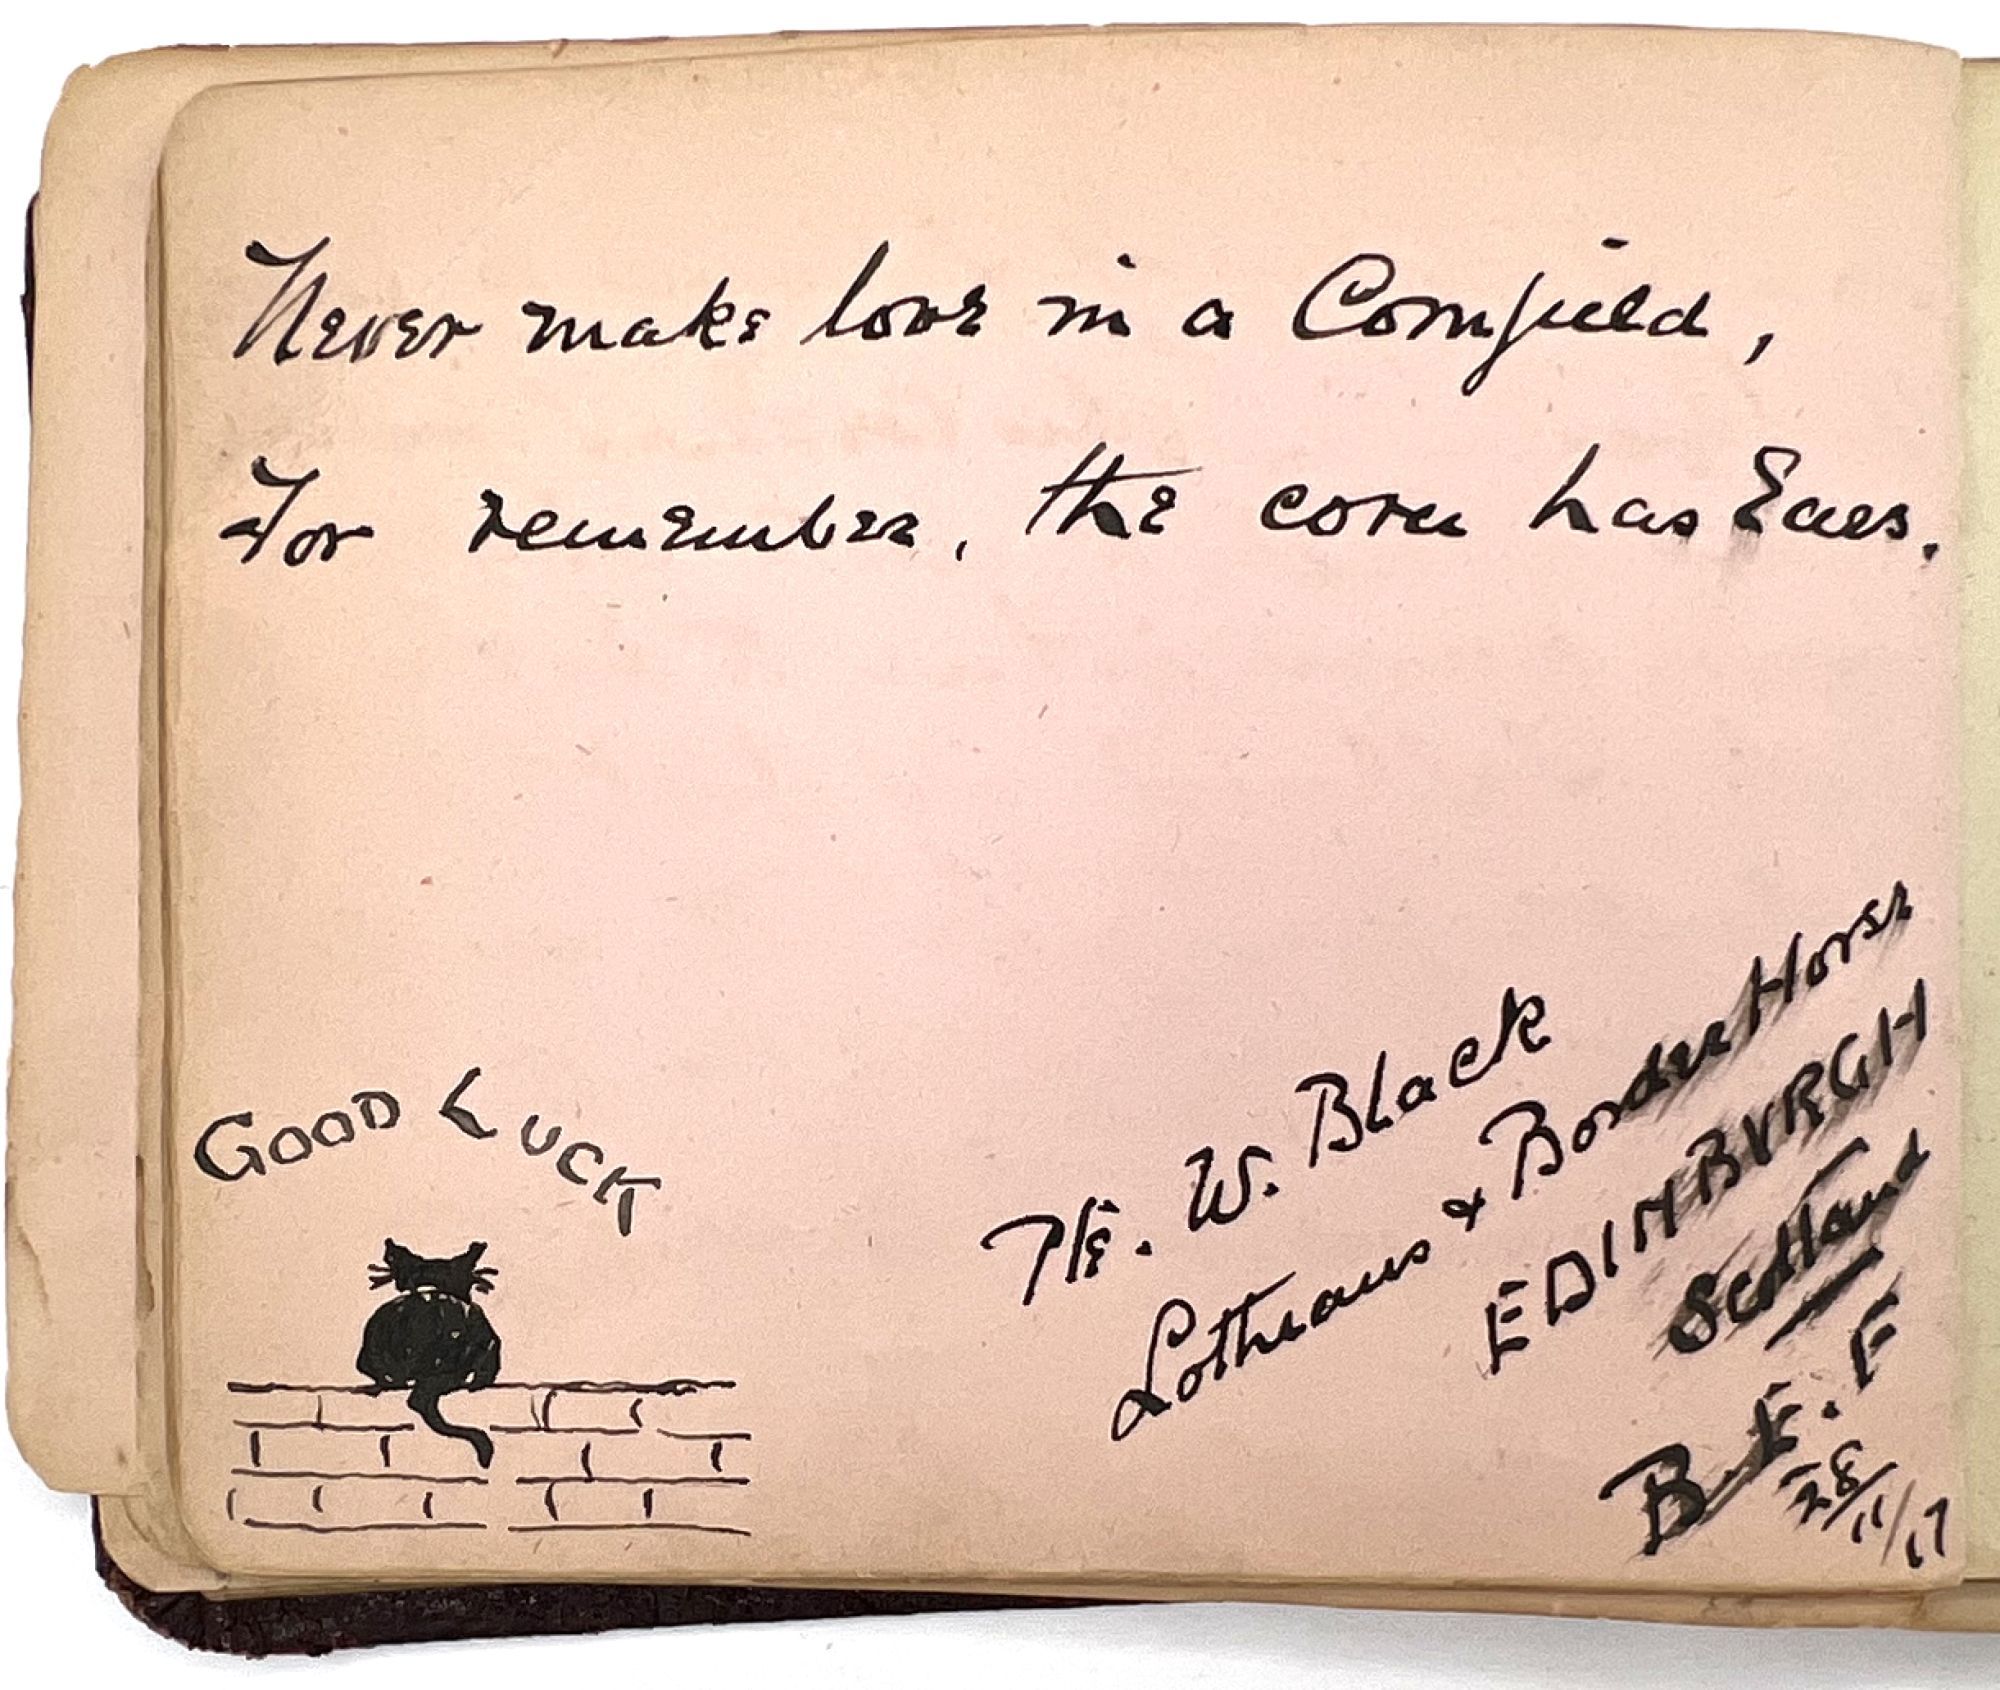 Never make love in a Cornfield,
For remember, the corn has Ears.
GOOD LUCK
Pte. W. Black
Lothians & Border Horse
EDINBURGH
Scotland
B.E.F
28/11/17